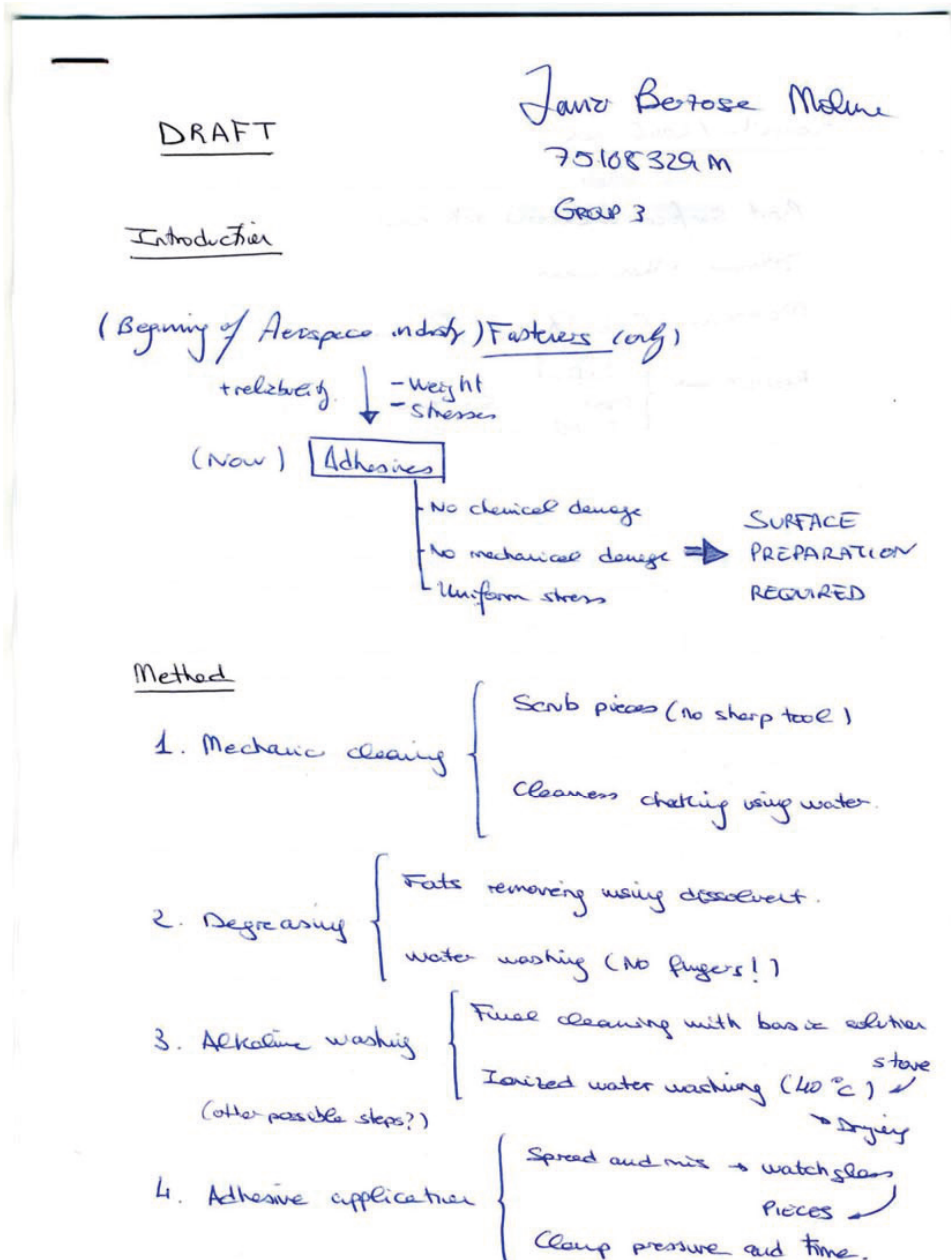 DRAFT
75108329M
GROUP 3
Introduction
(Beginning of Aerospace industry) Fasteners (only)
+reliability - weight
- stresses
(Now) Adhesives
- No chemical damage
- No mechanical damage ⇒ SURFACE PREPARATION REQUIRED
- Uniform stress
Method
1. Mechanic cleaning
Scrub pieces (no sharp tool)
Cleaness checking using water.
2. Degreasing
Fats removing using dissolvent.
water washing (No fingers!)
3. Alkaline washing
(other possible steps?)
Final cleaning with basic solution
Ionized water washing (40°C) stove
→ Drying
4. Adhesive application
Spread and mix → watchglass
PIECES
Clamp pressure and time.